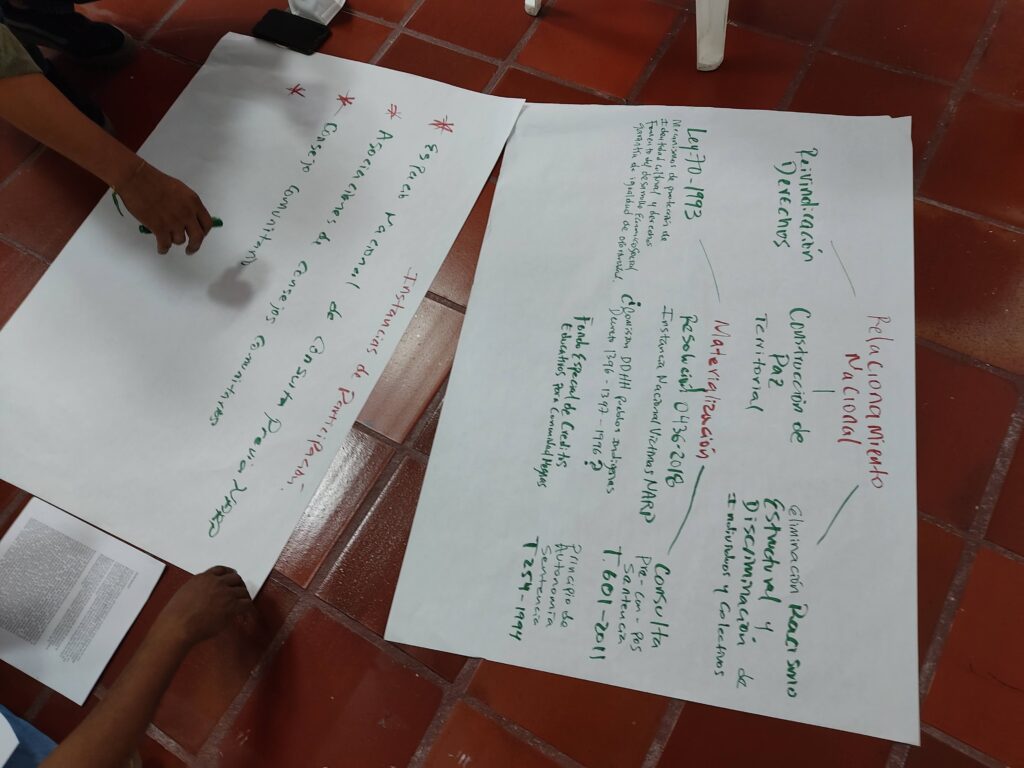 Relacionamiento
Nacional
Reivindicación
Derechos
Construcción de
Paz
Territorial
eliminación Racismo
Estructural y
Discriminación de
Individuos y colectivos
Materialización
Ley-70-1993
Mecanismos de protección de
Identidad cultural y derechos
Fomento del desarrollo Económico Social
garantía de igualdad de oportunidad.
Resolución 0436-2018
Instancia Nacional Víctimas NARP
¿Comisión DDHH pueblos indígenas
Decreto 1396-1397-1996?
Fondo Especial de Creditos
Educativos para Comunidad Negras
Consulta
Pre-con-pos
Sentencia
T.601-2011
Principio de
Autonomia
Sentencia
T254-1994
Instancias de Participación.
* Espacio Nacional de Consulta Previa
* Asociaciones de Consejos Comunitarios
* Consejo Comunitario
*